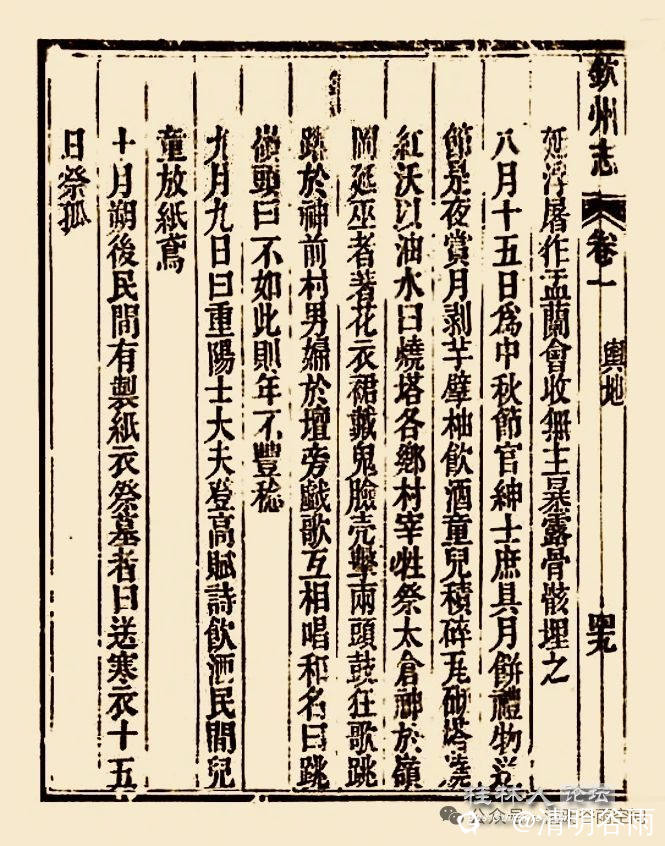 欽州志 卷一 輿地 四九
延浮屠作盂蘭會收無主暴露骨骸埋之
八月十五日爲中秋節官紳士庶具月餅禮物送
節是夜賞月剥芋擘柚飲酒童兒積碎瓦砌塔燒
紅沃以油水曰燒塔各鄉村宰牲祭太倉神於嶺
岡延巫者著花衣裙戴鬼臉壳擊兩頭鼓狂歌跳
踉於神前村男婦於壇旁戲歌互相唱和名曰跳
嶺頭曰不如此則年不豐稔
九月九日曰重陽士大夫登高賦詩飲酒民間兒
童放紙鳶
十月朔後民間有製紙衣祭墓者曰送寒衣十五
日祭孤
桂林人论坛
公众号
@清明谷雨